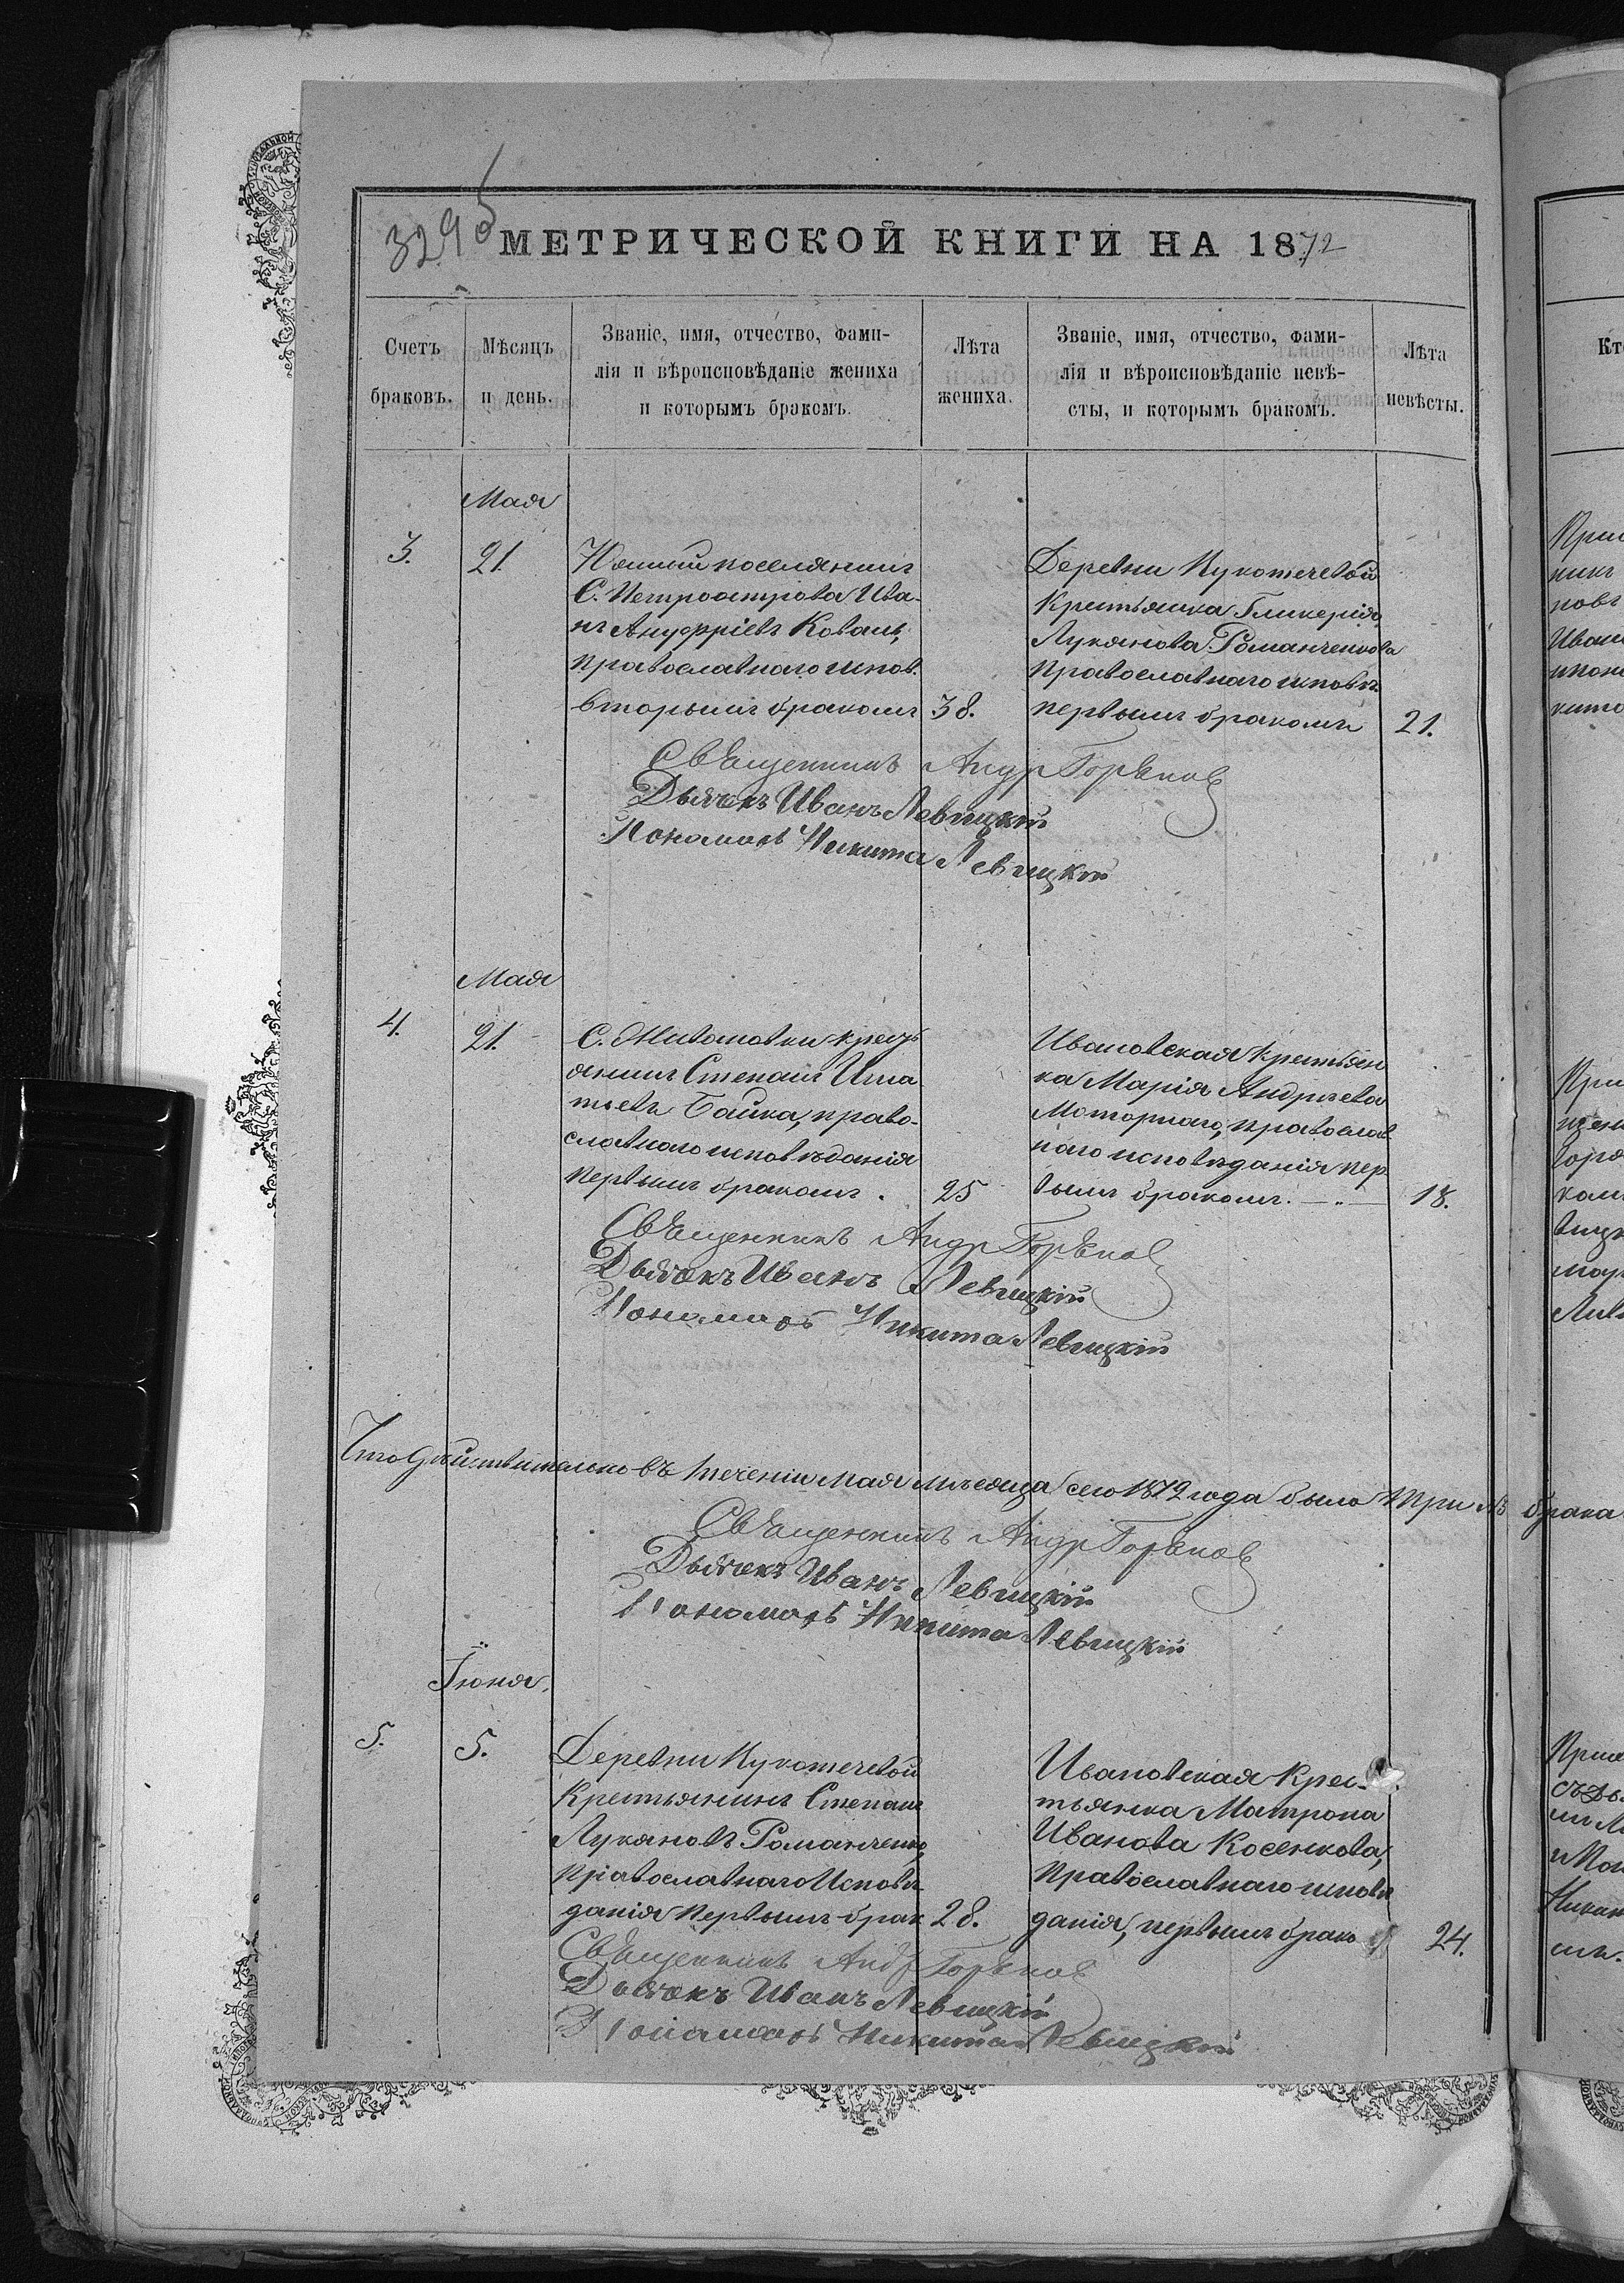 3295
МЕТРИЧЕСКОЙ КНИГИ НА 1872
Счетъ браковъ.
Мѣсяцъ и день.
Званіе, имя, отчество, фами-
лія и вѣроисповѣданіе жениха
и которымъ бракомъ.
Лѣта жениха.
Званіе, имя, отчество, фами-
лія и вѣроисповѣданіе невѣ-
сты, и которымъ бракомъ.
Лѣта невѣсты.
Мая
3.
21.
поселянинъ
С. Петроострова Ива-
нъ Ануфріевъ Коваль,
православнаго испов.
вторымъ бракомъ
38.
Деревни
Крестьянка Гликерія
Лукянова Романченкова
Православнаго исповѣ.
первымъ бракомъ
21.
Священникъ Андр Горѣнов
Дьячекъ Иванъ Левицкій
Пономарь Никита Левицкій
Мая
4.
21.
С. Живановки крест
янинъ Степанъ Игна
тьевъ Байка, право-
славнаго исповѣданія
первымъ бракомъ.
25
Ивановская крестьян
ка Марія Андреева
Моторнаго, православ
наго исповѣданія пер
вымъ бракомъ. — „ —
18.
Священникъ Андр Горѣнов
Дьячекъ Иванъ Левицкій
Пономарь Никита Левицкій
Что дѣйствительно въ теченіи Мая мѣсяца сего 1872 года было три №3 брака
Священникъ Андр Горѣнов
Дьячекъ Иванъ Левицкій
Пономарь Никита Левицкій
Іюня.
5.
5.
Деревни
Крестьянинъ Степанъ
Лукяновъ Романченко,
Православнаго Исповѣ-
данія первымъ брак
28.
Ивановская Крес-
тьянка Матрона
Иванова Косенкова,
Православнаго исповѣ
данія, первымъ брако
24.
Священникъ Андр Горѣнов
Дьячекъ Иванъ Левицкій
Пономарь Никита Левицкій